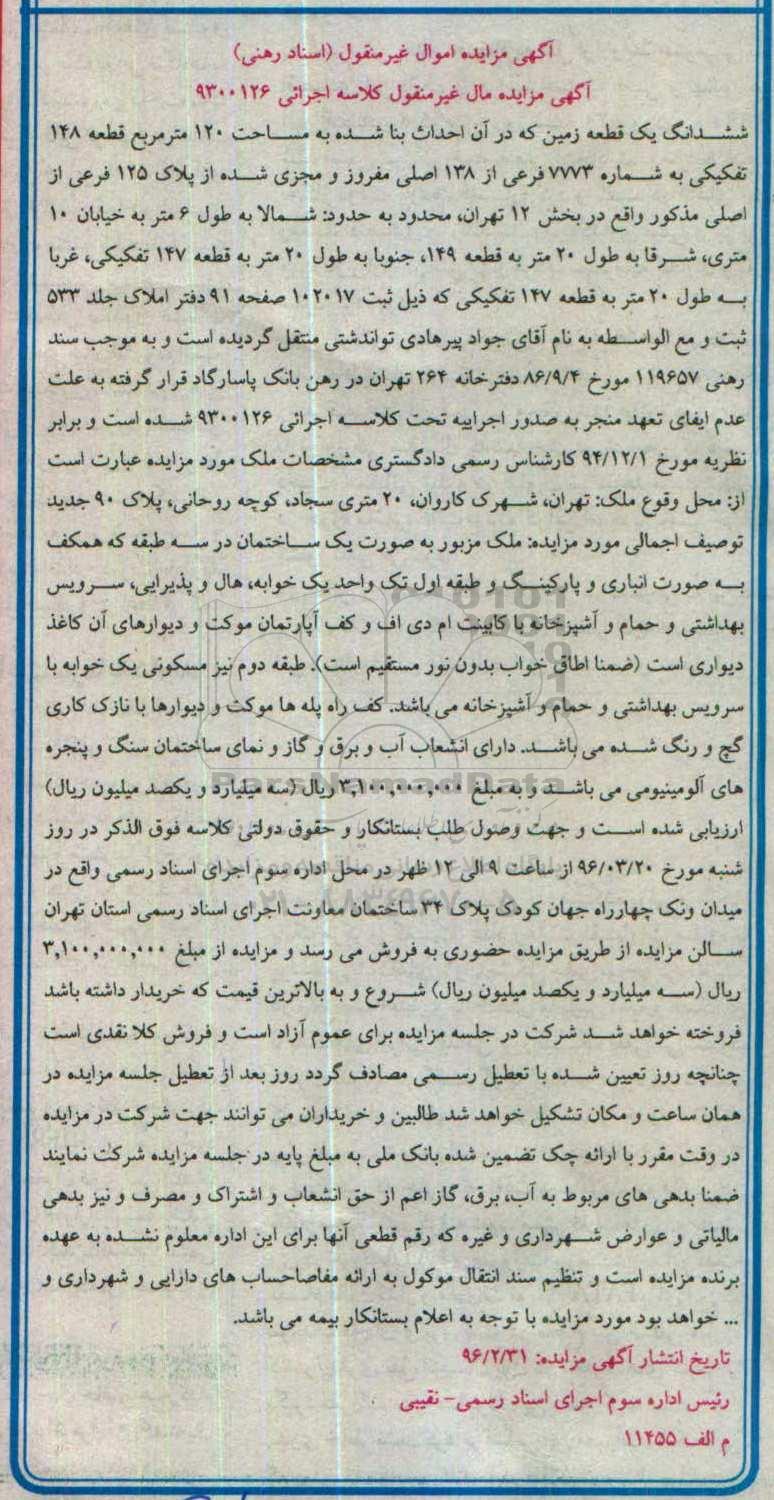 آگهی مزایده اموال غیرمنقول (اسناد رهنی)
آگهی مزایده مال غیرمنقول کلاسه اجرائی ۹۳۰۰۱۲۶
ششدانگ یک قطعه زمین که در آن احداث بنا شده به مساحت ۱۲۰ مترمربع قطعه ۱۴۸
تفکیکی به شماره ۷۷۷۳ فرعی از ۱۳۸ اصلی مفروز و مجزی شده از پلاک ۱۲۵ فرعی از
اصلی مذکور واقع در بخش ۱۲ تهران، محدود به حدود: شمالا به طول ۶ متر به خیابان ۱۰
متری، شرقا به طول ۲۰ متر به قطعه ۱۴۹، جنوبا به طول ۲۰ متر به قطعه ۱۴۷ تفکیکی، غربا
به طول ۲۰ متر به قطعه ۱۴۷ تفکیکی که ذیل ثبت ۱۰۲۰۱۷ صفحه ۹۱ دفتر املاک جلد ۵۳۳
ثبت و مع الواسطه به نام آقای جواد پیرهادی تواندشتی منتقل گردیده است و به موجب سند
رهنی ۱۱۹۶۵۷ مورخ ۸۶/۹/۴ دفترخانه ۲۶۴ تهران در رهن بانک پاسارگاد قرار گرفته به علت
عدم ایفای تعهد منجر به صدور اجراییه تحت کلاسه اجرائی ۹۳۰۰۱۲۶ شده است و برابر
نظریه مورخ ۹۴/۱۲/۱ کارشناس رسمی دادگستری مشخصات ملک مورد مزایده عبارت است
از: محل وقوع ملک: تهران، شهرک کاروان، ۲۰ متری سجاد، کوچه روحانی، پلاک ۹۰ جدید
توصیف اجمالی مورد مزایده: ملک مزبور به صورت یک ساختمان در سه طبقه که همکف
به صورت انباری و پارکینگ و طبقه اول تک واحد یک خوابه، هال و پذیرایی، سرویس
بهداشتی و حمام و آشپزخانه با کابینت ام دی اف و کف آپارتمان موکت و دیوارهای آن کاغذ
دیواری است (ضمنا اطاق خواب بدون نور مستقیم است). طبقه دوم نیز مسکونی یک خوابه با
سرویس بهداشتی و حمام و آشپزخانه می باشد. کف راه پله ها موکت و دیوارها با نازک کاری
گچ و رنگ شده می باشد. دارای انشعاب آب و برق و گاز و نمای ساختمان سنگ و پنجره
های آلومینیومی می باشد و به مبلغ ۳,۱۰۰,۰۰۰,۰۰۰ ریال (سه میلیارد و یکصد میلیون ریال)
ارزیابی شده است و جهت وصول طلب بستانکار و حقوق دولتی کلاسه فوق الذکر در روز
شنبه مورخ ۹۶/۰۳/۲۰ از ساعت ۹ الی ۱۲ ظهر در محل اداره سوم اجرای اسناد رسمی واقع در
میدان ونک چهارراه جهان کودک پلاک ۳۴ ساختمان معاونت اجرای اسناد رسمی استان تهران
سالن مزایده از طریق مزایده حضوری به فروش می رسد و مزایده از مبلغ ۳,۱۰۰,۰۰۰,۰۰۰
ریال (سه میلیارد و یکصد میلیون ریال) شروع و به بالاترین قیمت که خریدار داشته باشد
فروخته خواهد شد شرکت در جلسه مزایده برای عموم آزاد است و فروش کلا نقدی است
چنانچه روز تعیین شده با تعطیل رسمی مصادف گردد روز بعد از تعطیل جلسه مزایده در
همان ساعت و مکان تشکیل خواهد شد طالبین و خریداران می توانند جهت شرکت در مزایده
در وقت مقرر با ارائه چک تضمین شده بانک ملی به مبلغ پایه در جلسه مزایده شرکت نمایند
ضمنا بدهی های مربوط به آب، برق، گاز اعم از حق انشعاب و اشتراک و مصرف و نیز بدهی
مالیاتی و عوارض شهرداری و غیره که رقم قطعی آنها برای این اداره معلوم نشده به عهده
برنده مزایده است و تنظیم سند انتقال موکول به ارائه مفاصاحساب های دارایی و شهرداری و
... خواهد بود مورد مزایده با توجه به اعلام بستانکار بیمه می باشد.
تاریخ انتشار آگهی مزایده: ۹۶/۲/۳۱
رئیس اداره سوم اجرای اسناد رسمی- نقیبی
م الف ۱۱۴۵۵
ParsNamadData